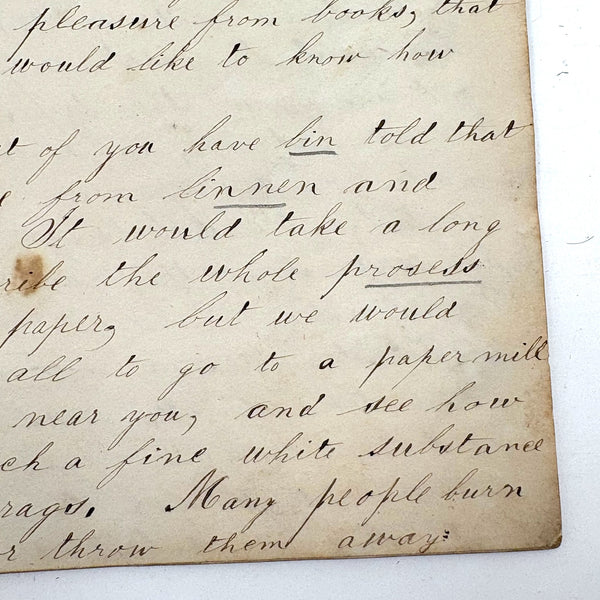 pleasure from books, that
would like to know how
of you have bin told that
from linnen and
It would take a long
ribe the whole prosess
paper, but we would
all to go to a paper mill
near you, and see how
ch a fine white substance
rags. Many people burn
r throw them away: